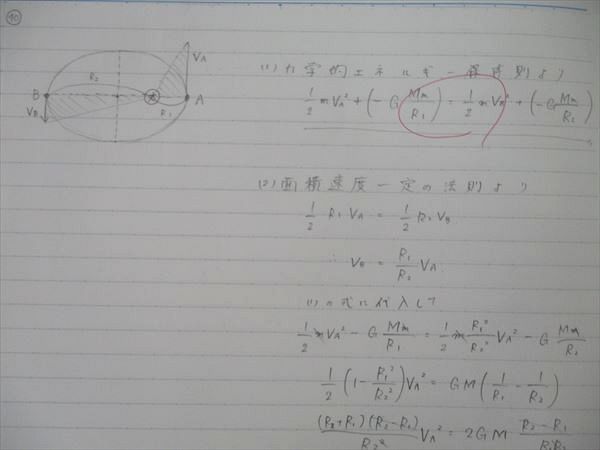 10
VA
R2
B
A
VB
R1
(1) 力学的エネルギー保存則より
1/2 mVA² + (-G Mm/R1) = 1/2 mVB² + (-G Mm/R2)
(2) 面積速度一定の法則より
1/2 R1 VA = 1/2 R2 VB
∴ VB = R1/R2 VA
(1)の式に代入して
1/2 mVA² - G Mm/R1 = 1/2 m R1²/R2² VA² - G Mm/R2
1/2 (1 - R1²/R2²) VA² = GM (1/R1 - 1/R2)
(R2+R1)(R2-R1)/R2² VA² = 2GM R2-R1/R1R2